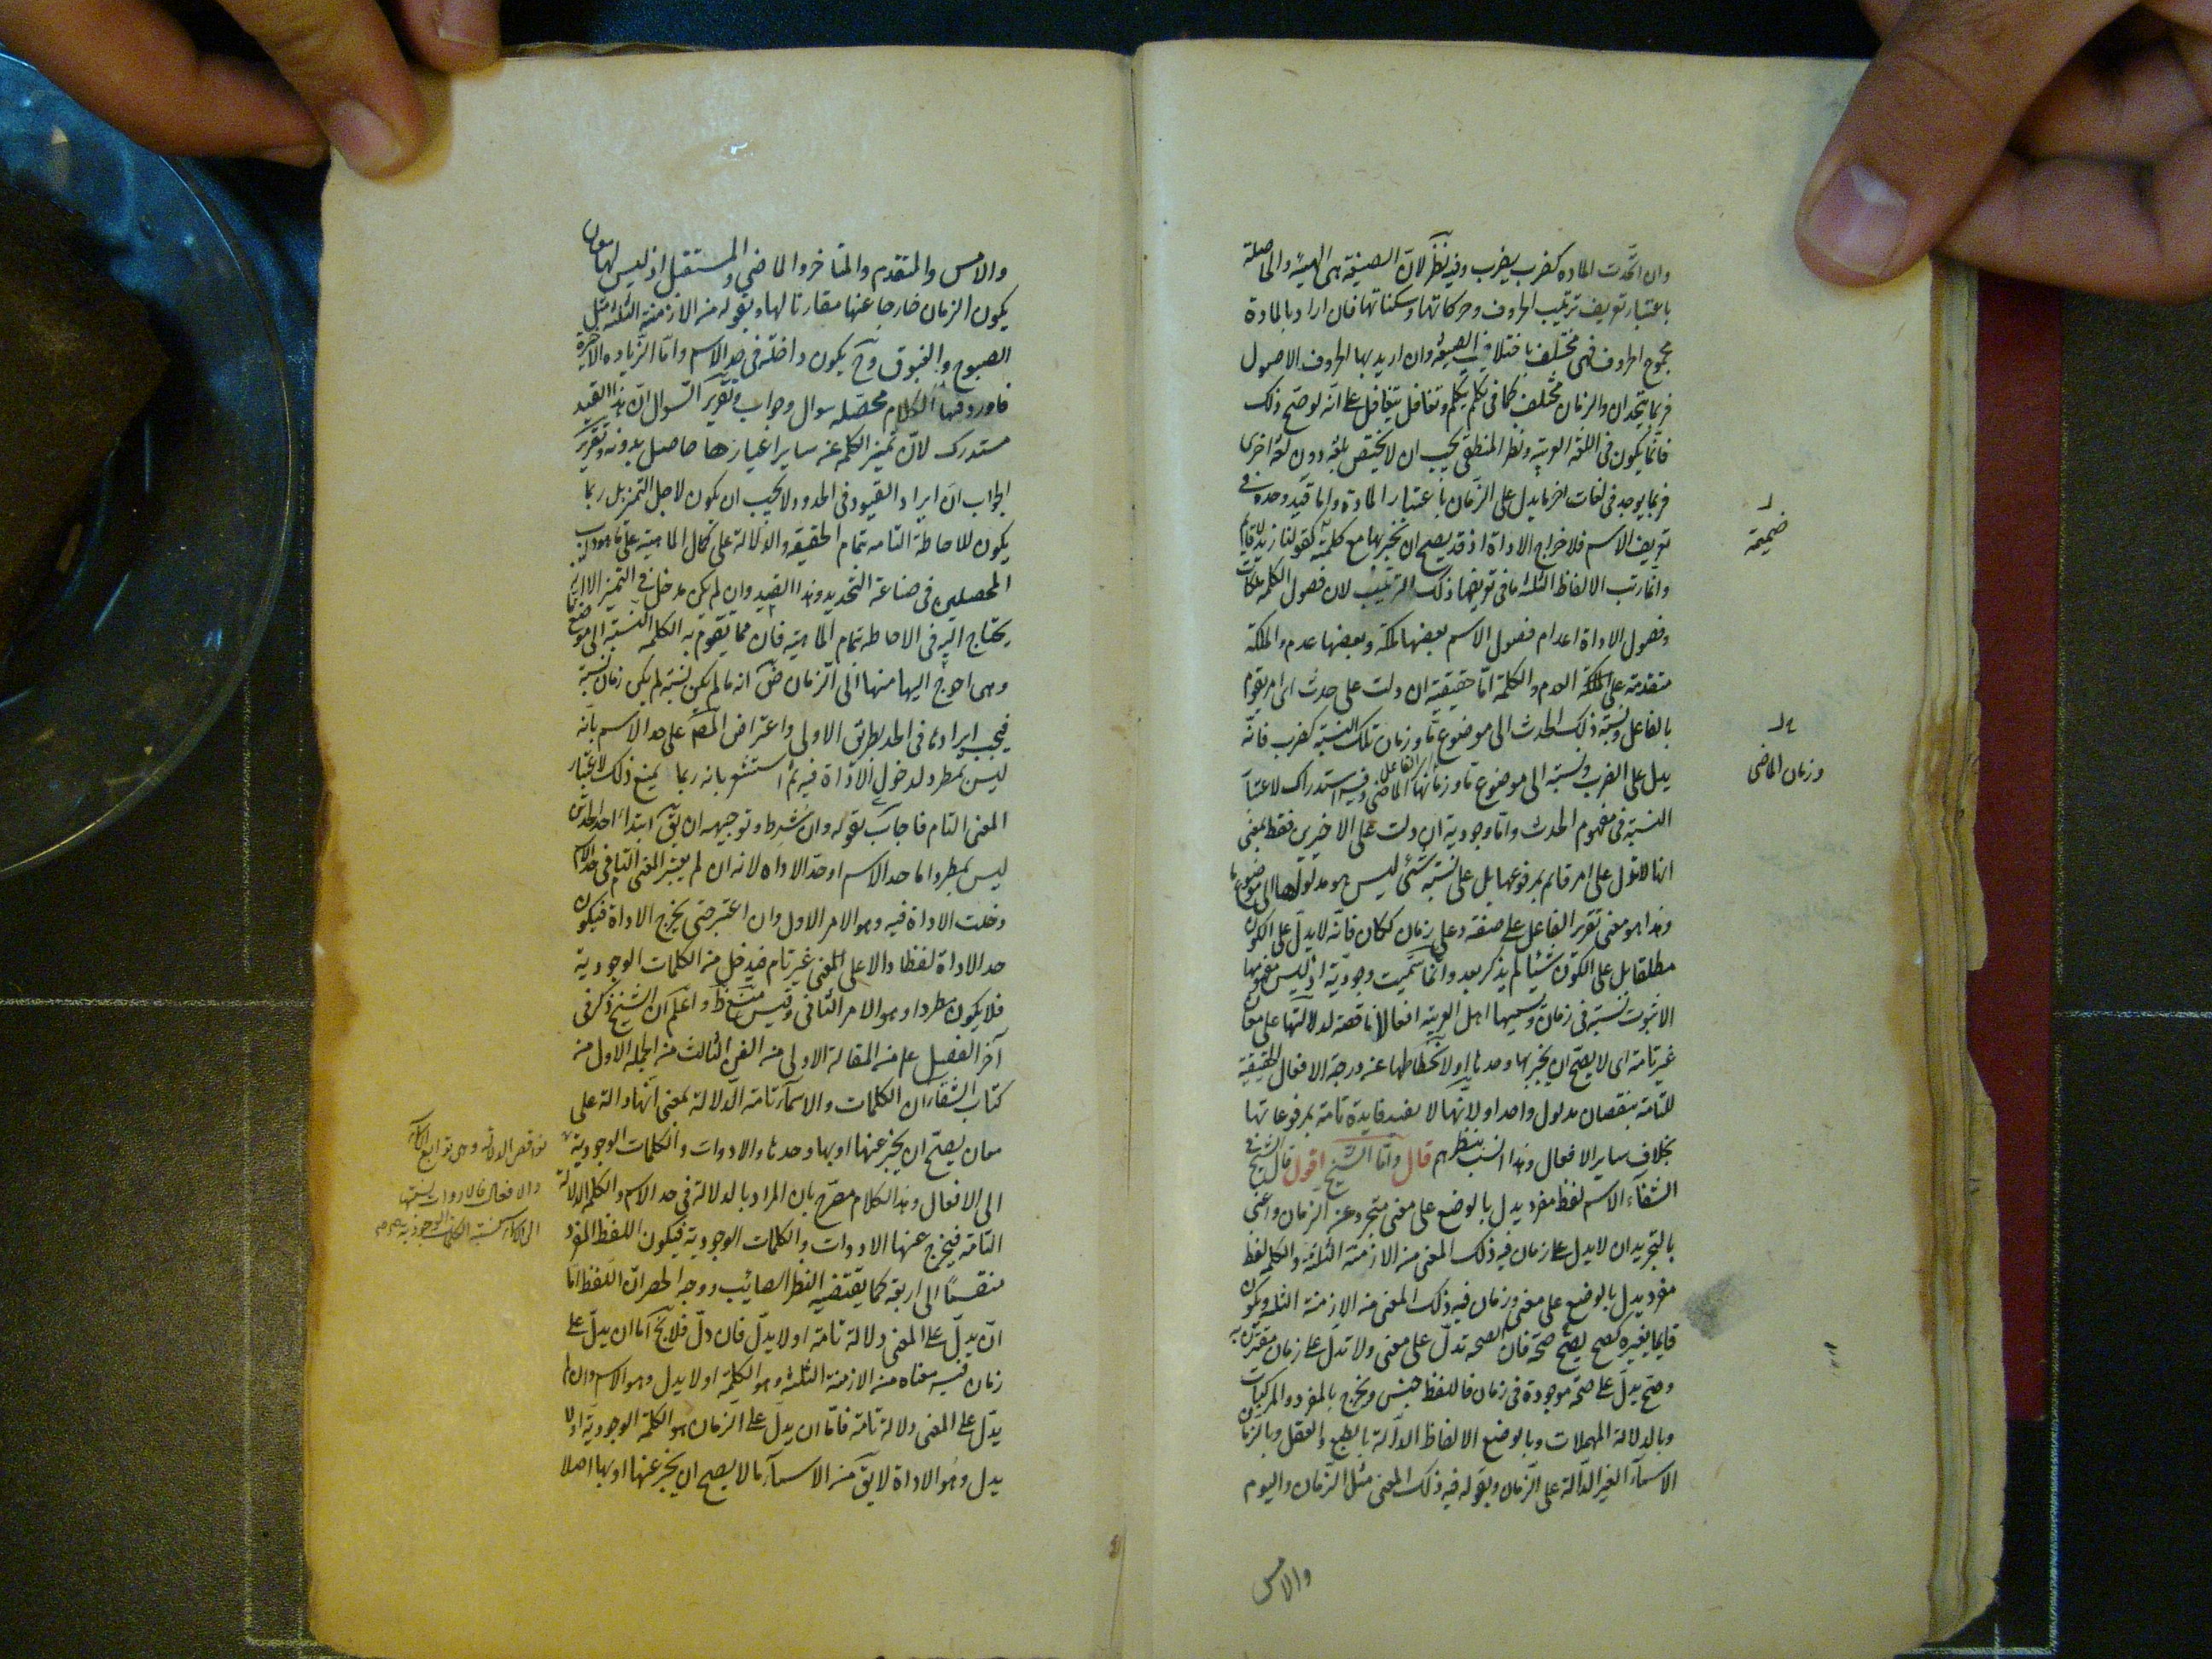 وان اتحدت المادة كضرب يضرب وفيه نظر لان الصيغة هى الهيئة والحاصلة
باعتبار تعريف ترتيب الحروف وحركاتها وسكناتها فان اراد بالمادة
مجموع الحروف فهى مختلف باختلاف الصيغة وان اريد بها الحروف الاصول
فربما يتحدان والزمان مختلف كما فى تكلم يتكلم وتغافل يتغافل على انه لو صح ذلك
فانما يكون فى اللغة العربية ونظر المنطقى يجب ان لا يختص بلغة دون لغة اخرى
فربما يوجد فى لغات اخر ما يدل على الزمان باعتبار المادة وانما قيد وحده فى
تعريف الاسم فلاخراج الاداة اذ قد يصح ان يخبر بها مع كلمة كقولنا زيد لا قايم
وانما رتب الالفاظ الثلثة ما فى تعريفها ذلك الترتيب لان فصول الكلمة ملكات
وفصول الاداة اعدام فصول الاسم بعضها ملكة وبعضها عدم والملكة
متقدمة على الملكة العدم والكلمة اما حقيقية ان دلت على حدث اى امر يقوم
بالفاعل ونسبة ذلك الحدث الى موضوع ما وزمان تلك النسبة كضرب فانه
يدل على الضرب ونسبته الى موضوع ما وزمانها الماضى وفيه استدراك لاعتبار
الفاعل
النسبة فى مفهوم الحدث واما وجودية ان دلت على الاخيرين فقط بمعنى
انها لا تدل على امر قايم بمرفوعها بل على نسبة شئ ليس هو مدلولها الى موضوع ما
وهذا هو معنى تقرير الفاعل على صفة وعلى زمان ككان فانه لا يدل على الكون
مطلقا بل على الكون شيئا لم يذكر بعد وانما سميت وجودية اذ ليس مفهومها
الا ثبوت نسبة فى زمان ويسميها اهل العربية افعالا ناقصة لدلالتها على معان
غير تامة اى لا يصح ان يخبر بها وحدها او لانحطاطها عن درجة الافعال الحقيقية
للتامة بنقصان مدلول واحد او لانها لا يفيد فايدة تامة بمرفوعاتها
بخلاف ساير الافعال وهذا انسب بنظرهم قال واما الشيخ اقول قال الشيخ فى
الشفاء الاسم لفظ مفرد يدل بالوضع على معنى متجرد عن الزمان واعنى
بالتجريد ان لا يدل على زمان فيه ذلك المعنى من الازمنة الثلثة والكلمة لفظ
مفرد يدل بالوضع على معنى وزمان فيه ذلك المعنى من الازمنة الثلثة ويكون
قايما بغيره كصح يصح صحة فان الصحة تدل على معنى ولا تدل على زمان مقترن به
وصح يدل على صحة موجودة فى زمان فاللفظ جنس ويخرج بالمفرد المركبات
وبالدلالة المهملات وبالوضع الالفاظ الدالة بالطبع والعقل وبالزمان
الاسماء الغير الدالة على الزمان وبقوله فيه ذلك المعنى مثل الزمان واليوم
والامس
ضميمة
وزمان الماضى
والامس والمتقدم والمتاخر والماضى والمستقبل اذ ليس لها معان
يكون الزمان خارجا عنها مقارنا لها وبقوله من الازمنة الثلثة مثل
الصبوح والغبوق وح يكون داخلة فى حد الاسم واما الزيادة الاخيرة
فاورد فيها الكلام محصله سوال وجواب وتقرير السوال ان هذا القيد
مستدرك لان تميز الكلمة عن ساير اغيارها حاصل بدونه وتقرير
الجواب ان ايراد القيود فى الحدود لا يجب ان يكون لاجل التميز بل ربما
يكون للاحاطة التامة بتمام الحقيقة والدلالة على كمال الماهية على ما هو داب
المحصلين فى صناعة التحديد وهذا القيد وان لم يكن له دخل فى التميز الا انه
يحتاج اليه فى الاحاطة بتمام الماهية فان مما يتقوم به الكلمة النسبة الى موضوع ما
وهى احوج اليها منها الى الزمان ض انه ما لم يكن نسبة لم يكن زمان نسبة
فيجب ايرادها فى الحد بطريق الاولى واعتراض المص على حد الاسم بانه
ليس بمطرد لدخول الاداة فيه ثم استشعر بانه ربما يمنع ذلك لاعتبار
المعنى التام فاجاب بقوله وان شرط وتوجيهه ان يق ابتداء احد الحدين
ليس بمطرد اما حد الاسم او حد الاداة لانه ان لم يعتبر المعنى التام فى حد الاسم
دخلت الاداة فيه وهو الامر الاول وان اعتبر حتى يخرج الاداة فيكون
حد الاداة لفظا دالا على المعنى غير تام فيدخل فيه الكلمات الوجودية
فلا يكون مطردا وهو الامر الثانى واعلم ان الشيخ ذكر فى
آخر الفصل من المقالة الاولى من الفن الثالث من الجملة الاولى من
كتاب الشفاء ان الكلمات والاسماء تامة الدلالة بمعنى انها دالة على
معان يصح ان يخبر عنها او بها وحدها والادوات والكلمات الوجودية
الى الافعال وهذا الكلام مصرح بان المراد بالدلالة فى حد الاسم والكلمة الدلالة
التامة فيخرج عنها الادوات والكلمات الوجودية فيكون اللفظ المفرد
منقسما الى اربعة كما يقتضيه النظر الصائب ووجه الحصر ان اللفظ اما
ان يدل على المعنى دلالة تامة او لا يدل فان دل فلا يخ اما ان يدل على
زمان فيه معناه من الازمنة الثلثة وهو الكلمة او لا يدل وهو الاسم وان لم
يدل على المعنى دلالة تامة فاما ان يدل على الزمان هو الكلمة الوجودية او لا
يدل وهو الاداة لا يق من الاسماء ما لا يصح ان يخبر عنها او بها اصلا
نواقص الدلالة وهى توابع الاسماء
والافعال فالادوات نسبتها
الى الاسماء كنسبة الكلمات الوجودية